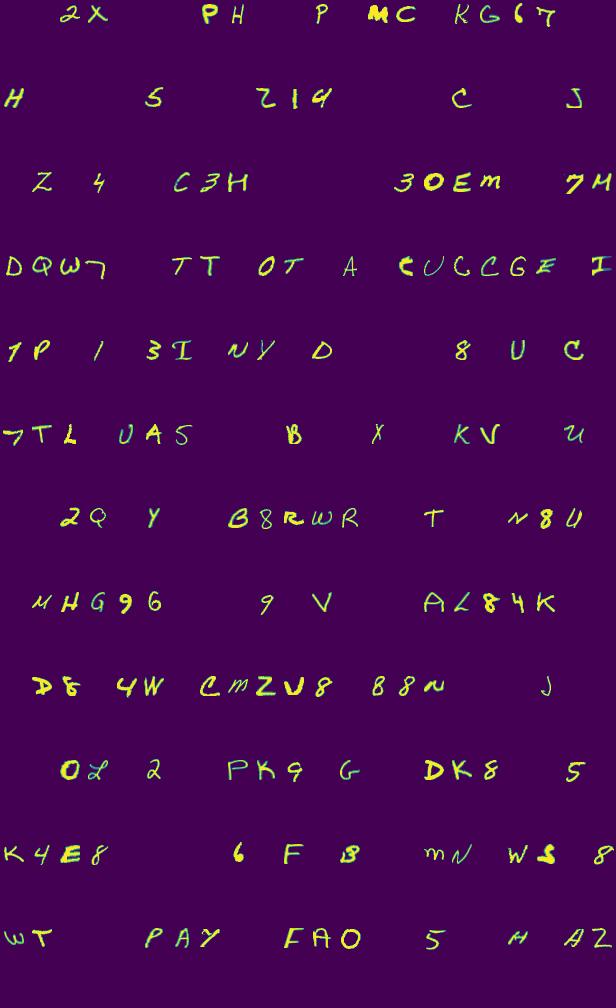 2X PH P MC KG67
H 5 Z19 C J
Z 4 C3H 30EM 7M
DQW7 TT OT A CUCCGE I
7P 1 3I NY D 8 U C
7TL UA5 B X KV U
2Q Y B8RWR T N8U
MHG96 9 V AL84K
D8 4W CMZV8 88N J
OL 2 PK9 G DK8 5
K4E8 6 F B MN WS 8
WT PAY FAO 5 H AZ